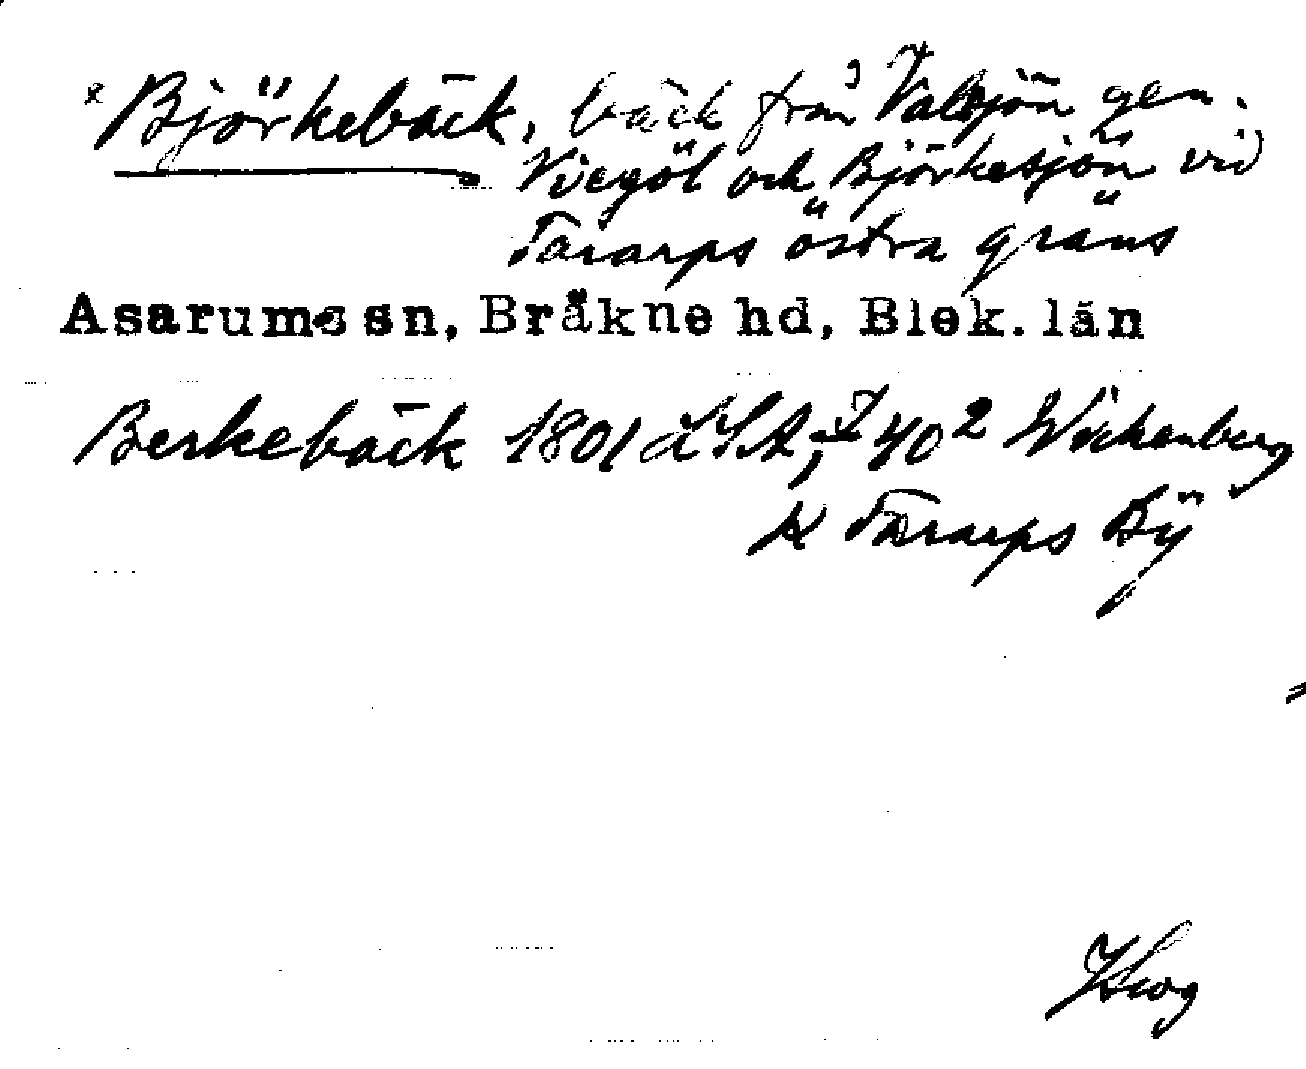 x Björkebäck, bäck från Valsjön gen.
Viegöl och Björkesjön vid
Tararps östra gräns
Asarums sn, Bräkne hd, Blek. län
Berkebäck 1801 LSA, 40² Wickenberg
K Tararps By